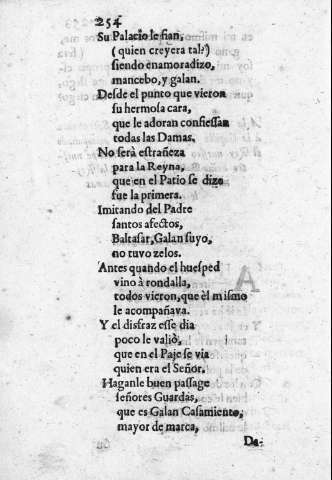 254
Su Palacio le fian,
( quien creyera tal?)
siendo enamoradizo,
mancebo, y galan.
Desde el punto que vieron
su hermosa cara,
que le adoran confiessan
todas las Damas.
No serà estrañeza
para la Reyna,
que en el Patio se dize
fue la primera.
Imitando del Padre
santos afectos,
Baltasar, Galan suyo,
no tuvo zelos.
Antes quando el huesped
vino à rondalla,
todos vieron, que èl mismo
le acompañava.
Y el disfraz esse dia
poco le valiò,
que en el Paje se via
quien era el Señor.
Haganle buen passage
señores Guardas,
que es Galan Casamiento,
mayor de marca,
De-